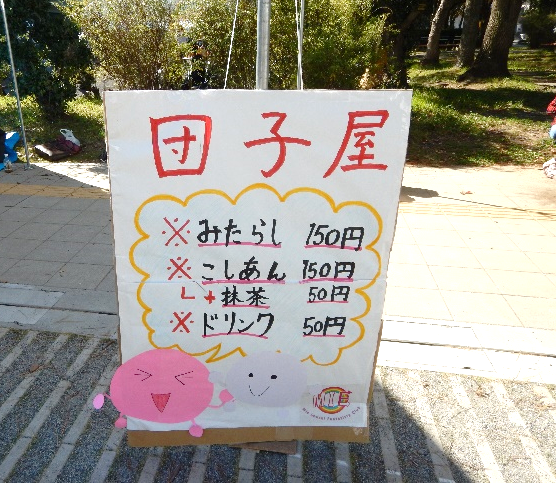 団子屋
※みたらし 150円
※こしあん 150円
└+抹茶 50円
※ドリンク 50円